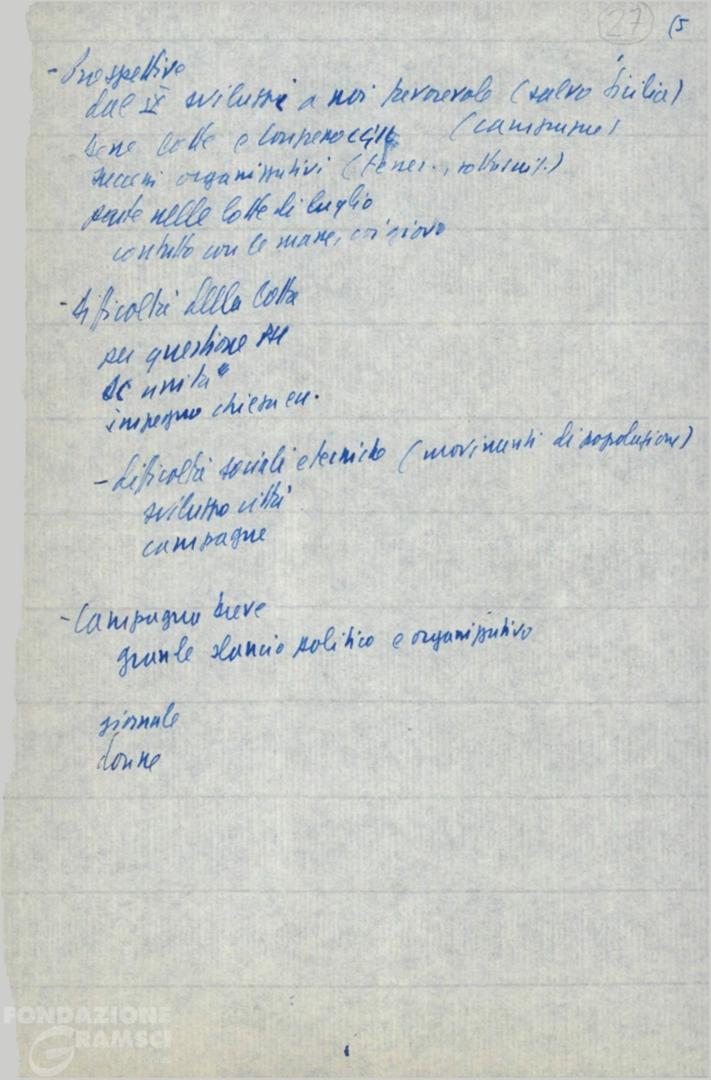 27 (5
- Prospettive
dal IX sviluppi a noi favorevole (salvo Sicilia)
bene lotte e (campagne)
successi organizzativi (tesser.,
parte nelle lotte di luglio
contatto con le masse, coi giovani
- difficoltà della lotta
su questione
DC unita
impegno chiesa
- difficoltà sociali e tecniche (movimenti di popolazione)
sviluppo città
campagne
- Campagna breve
grande slancio politico e organizzativo
giornale
donne
FONDAZIONE
GRAMSCI